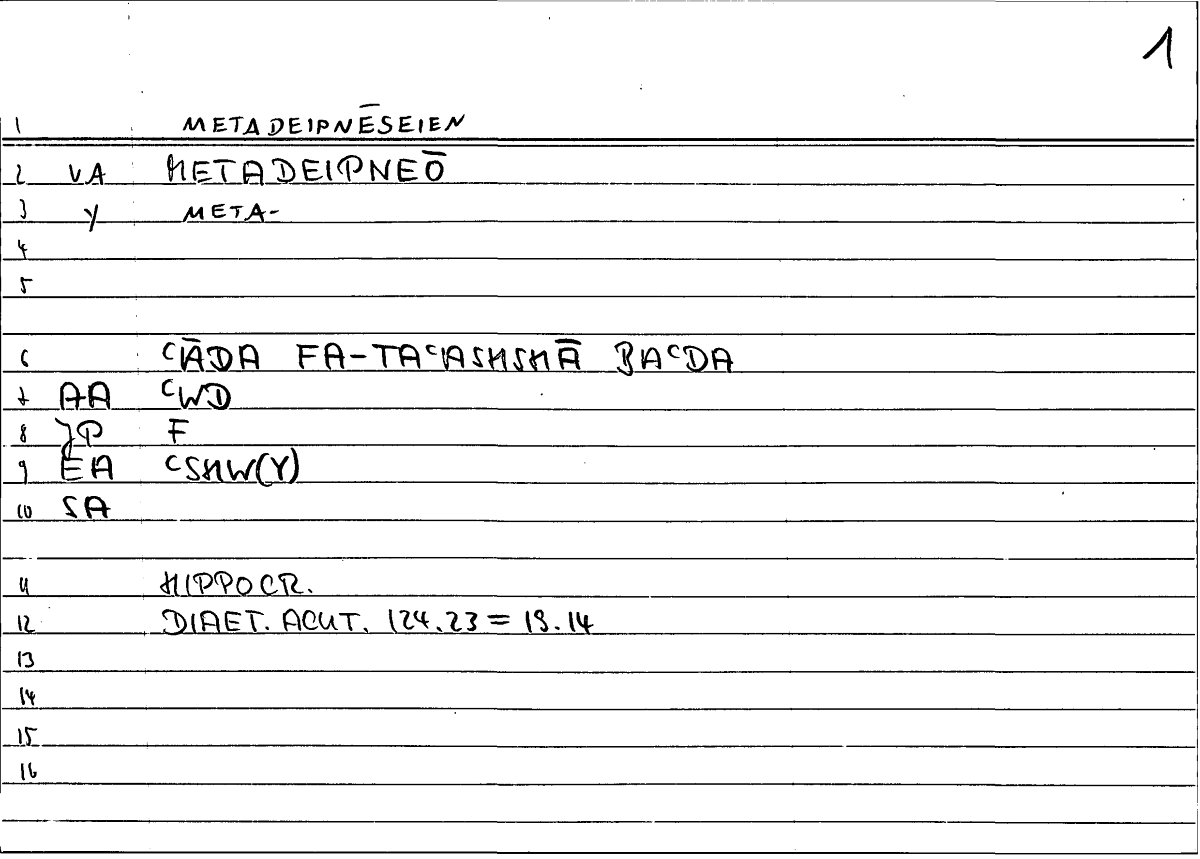 1
1 METADEIPNĒSEIEN
2 VA METADEIPNEŌ
3 Y META-
4
5
6 ʿĀDA FA-TAʿASHSHĀ BAʿDA
7 AA ʿWD
8 JP F
9 EA ʿSHW(Y)
10 SA
11 HIPPOCR.
12 DIAET. ACUT. 124.23 = 19.14
13
14
15
16